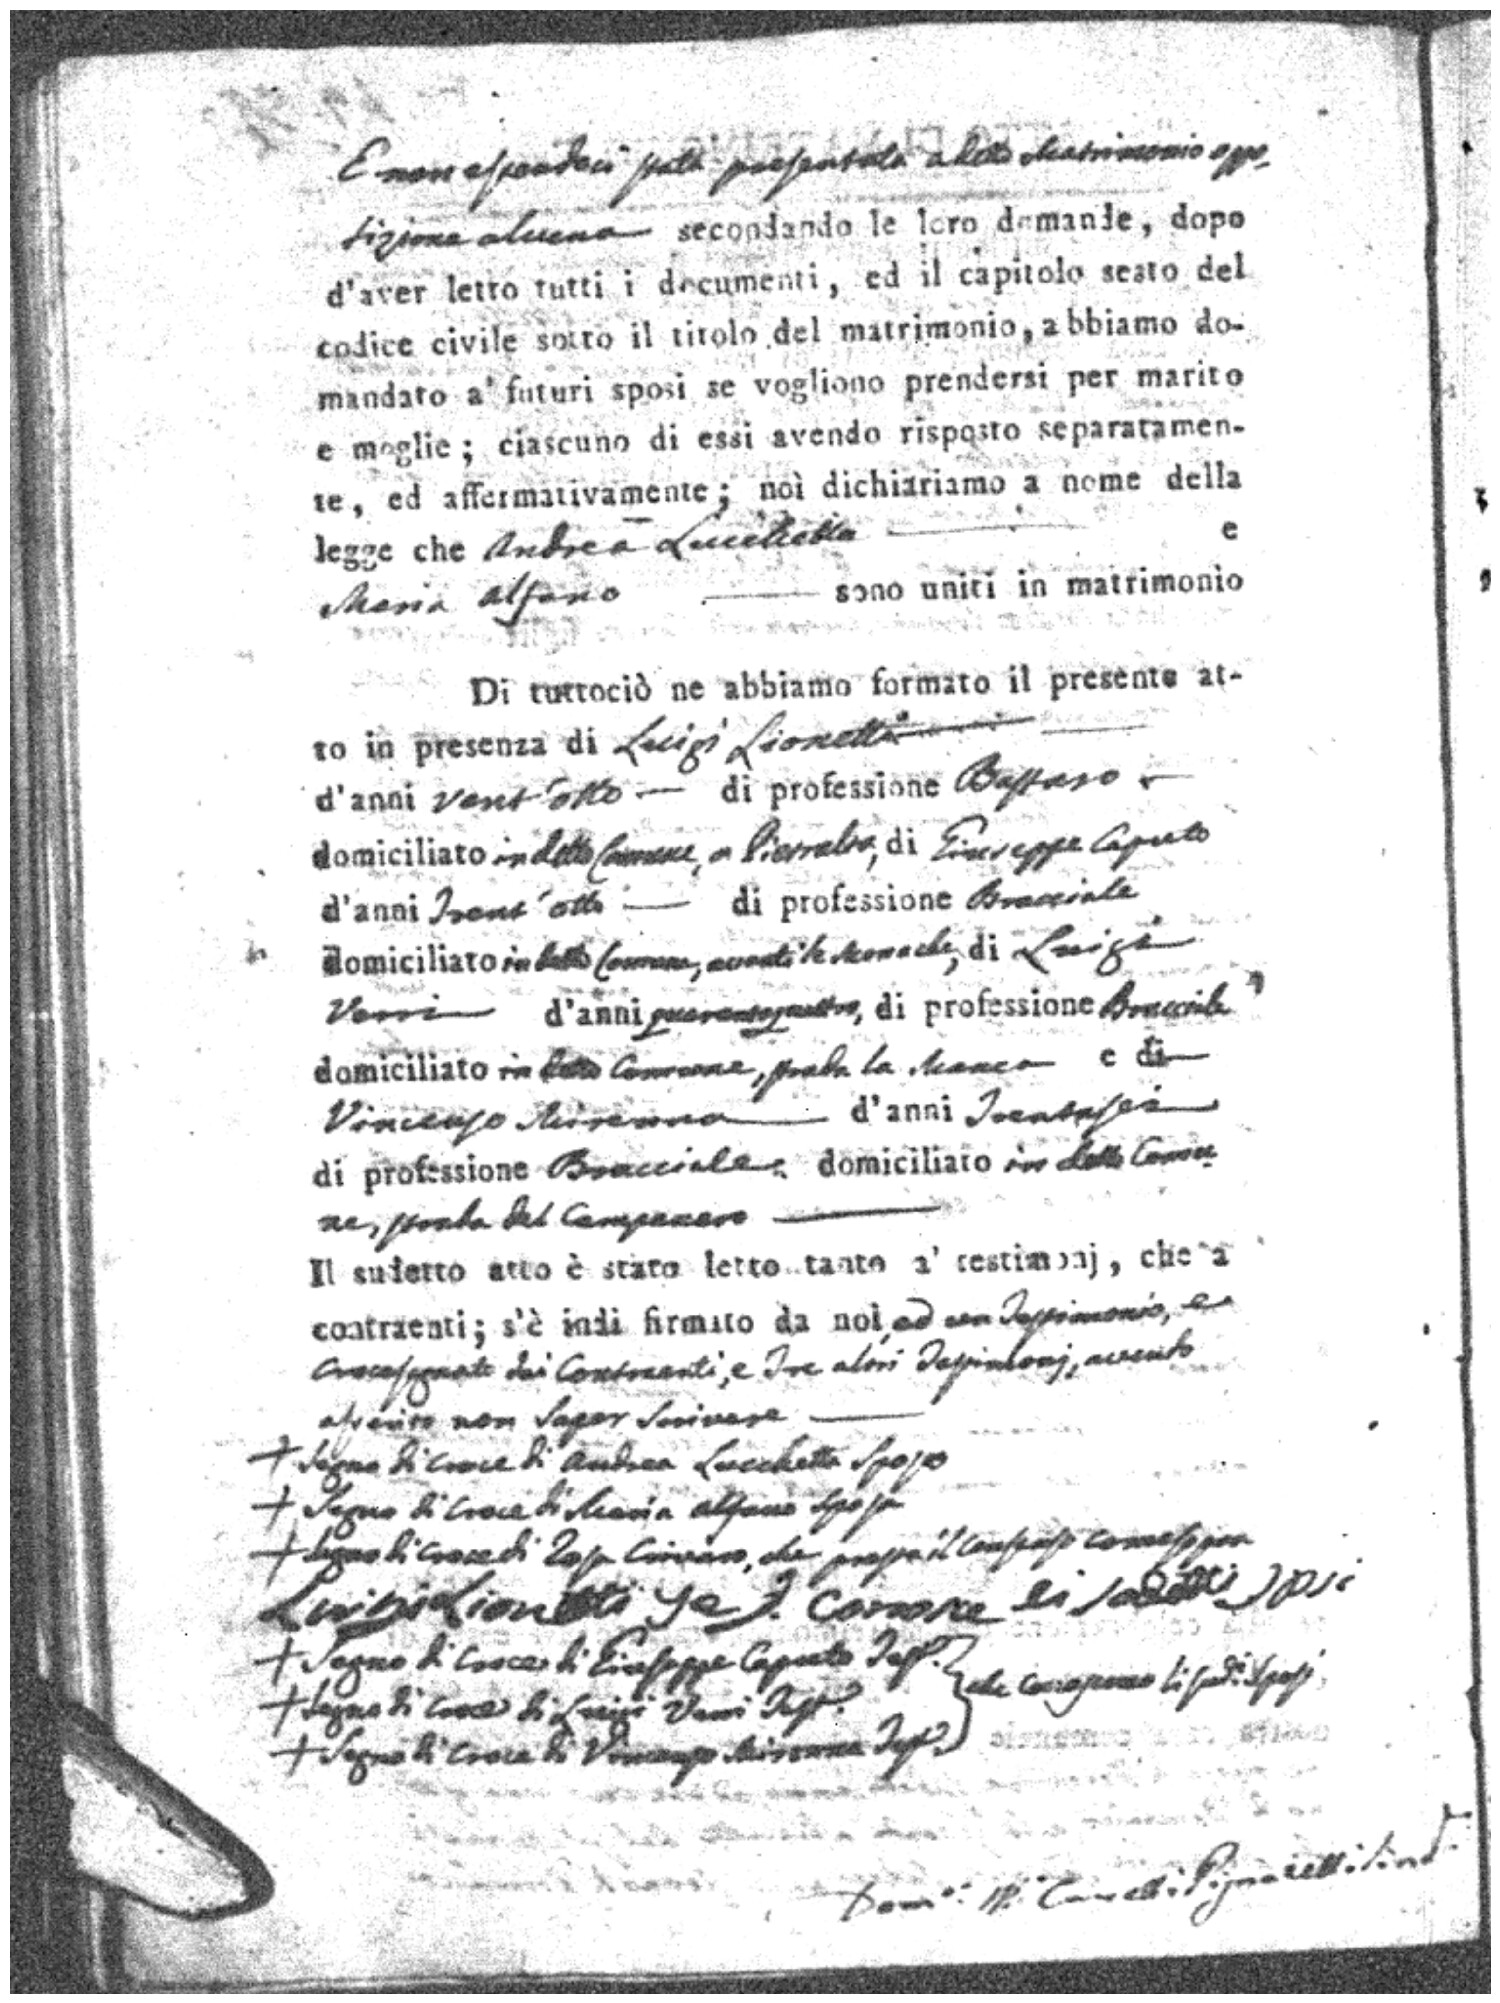 E non essendosi stata presentata a detto Matrimonio oppo-
sizione alcuna secondando le loro domande, dopo
d'aver letto tutti i documenti, ed il capitolo sesto del
codice civile sotto il titolo del matrimonio, abbiamo do-
mandato a' futuri sposi se vogliono prendersi per marito
e moglie; ciascuno di essi avendo risposto separatamen-
te, ed affermativamente; noi dichiariamo a nome della
legge che Andrea Lucchetta e
Maria Alfano sono uniti in matrimonio
Di tuttociò ne abbiamo formato il presente at-
to in presenza di Luigi Lionetti
d'anni vent'otto di professione Bastaro
domiciliato in detto Comune, a Pietralta, di Giuseppe Caputo
d'anni Trent'otto di professione Bracciale
domiciliato in detto Comune, avanti le Monache, di Luigi
Verri d'anni quarantaquattro, di professione Bracciale
domiciliato in detto Comune, strada la Manca e di
Vincenzo Mirenna d'anni Trentasei
di professione Bracciale, domiciliato in detto Comu-
ne, strada del Campanaro
Il sudetto atto è stato letto tanto a' testimonj, che a
contraenti; s'è indi firmato da noi, ed un Testimonio, e
crocesegnato dai Contraenti, e Tre altri Testimonj, avendo
asserito non saper scrivere
+ Segno di croce di Andrea Lucchetta Sposo
+ Segno di croce di Maria Alfano Sposa
+ Segno di croce di Rosa, che presta il consenso come sopra
Luigi Lionetti Te. J. Conosce li sadetti Sposi
+ Segno di croce di Giuseppe Caputo Test.
+ Segno di croce di Luigi Verri Test. che conoscono li sud.i Sposi
+ Segno di croce di Vincenzo Mirenna Test.
Dom.o Pignatelli Sind.